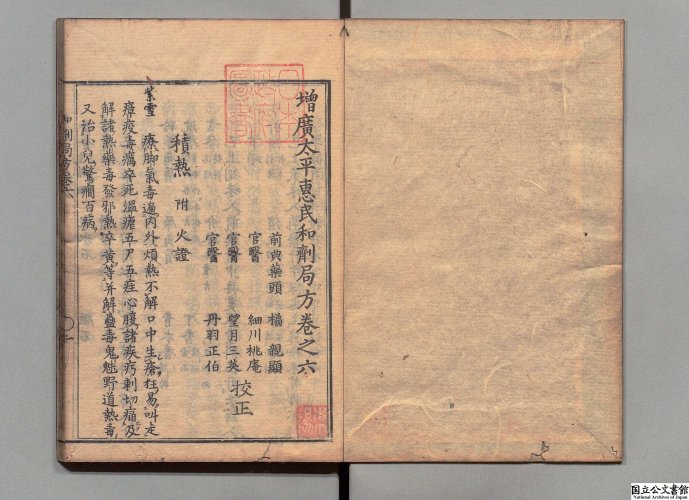 増廣太平惠民和劑局方卷之六
前典藥頭 橘 親顯
官醫 細川桃庵
官醫 望月三英 校正
官醫 丹羽正伯
積熱 附火證
紫雪 療脚氣毒遍內外煩熱不解口中生瘡狂易叫走
瘴疫毒癘卒死溫瘧五尸五疰心腹諸疾㽲刺切痛及
解諸熱藥毒發邪熱卒黃等并解蠱毒鬼魅野道熱毒
又治小兒驚癎百病
日本
政府
圖書
国立公文書館
National Archives of Japan